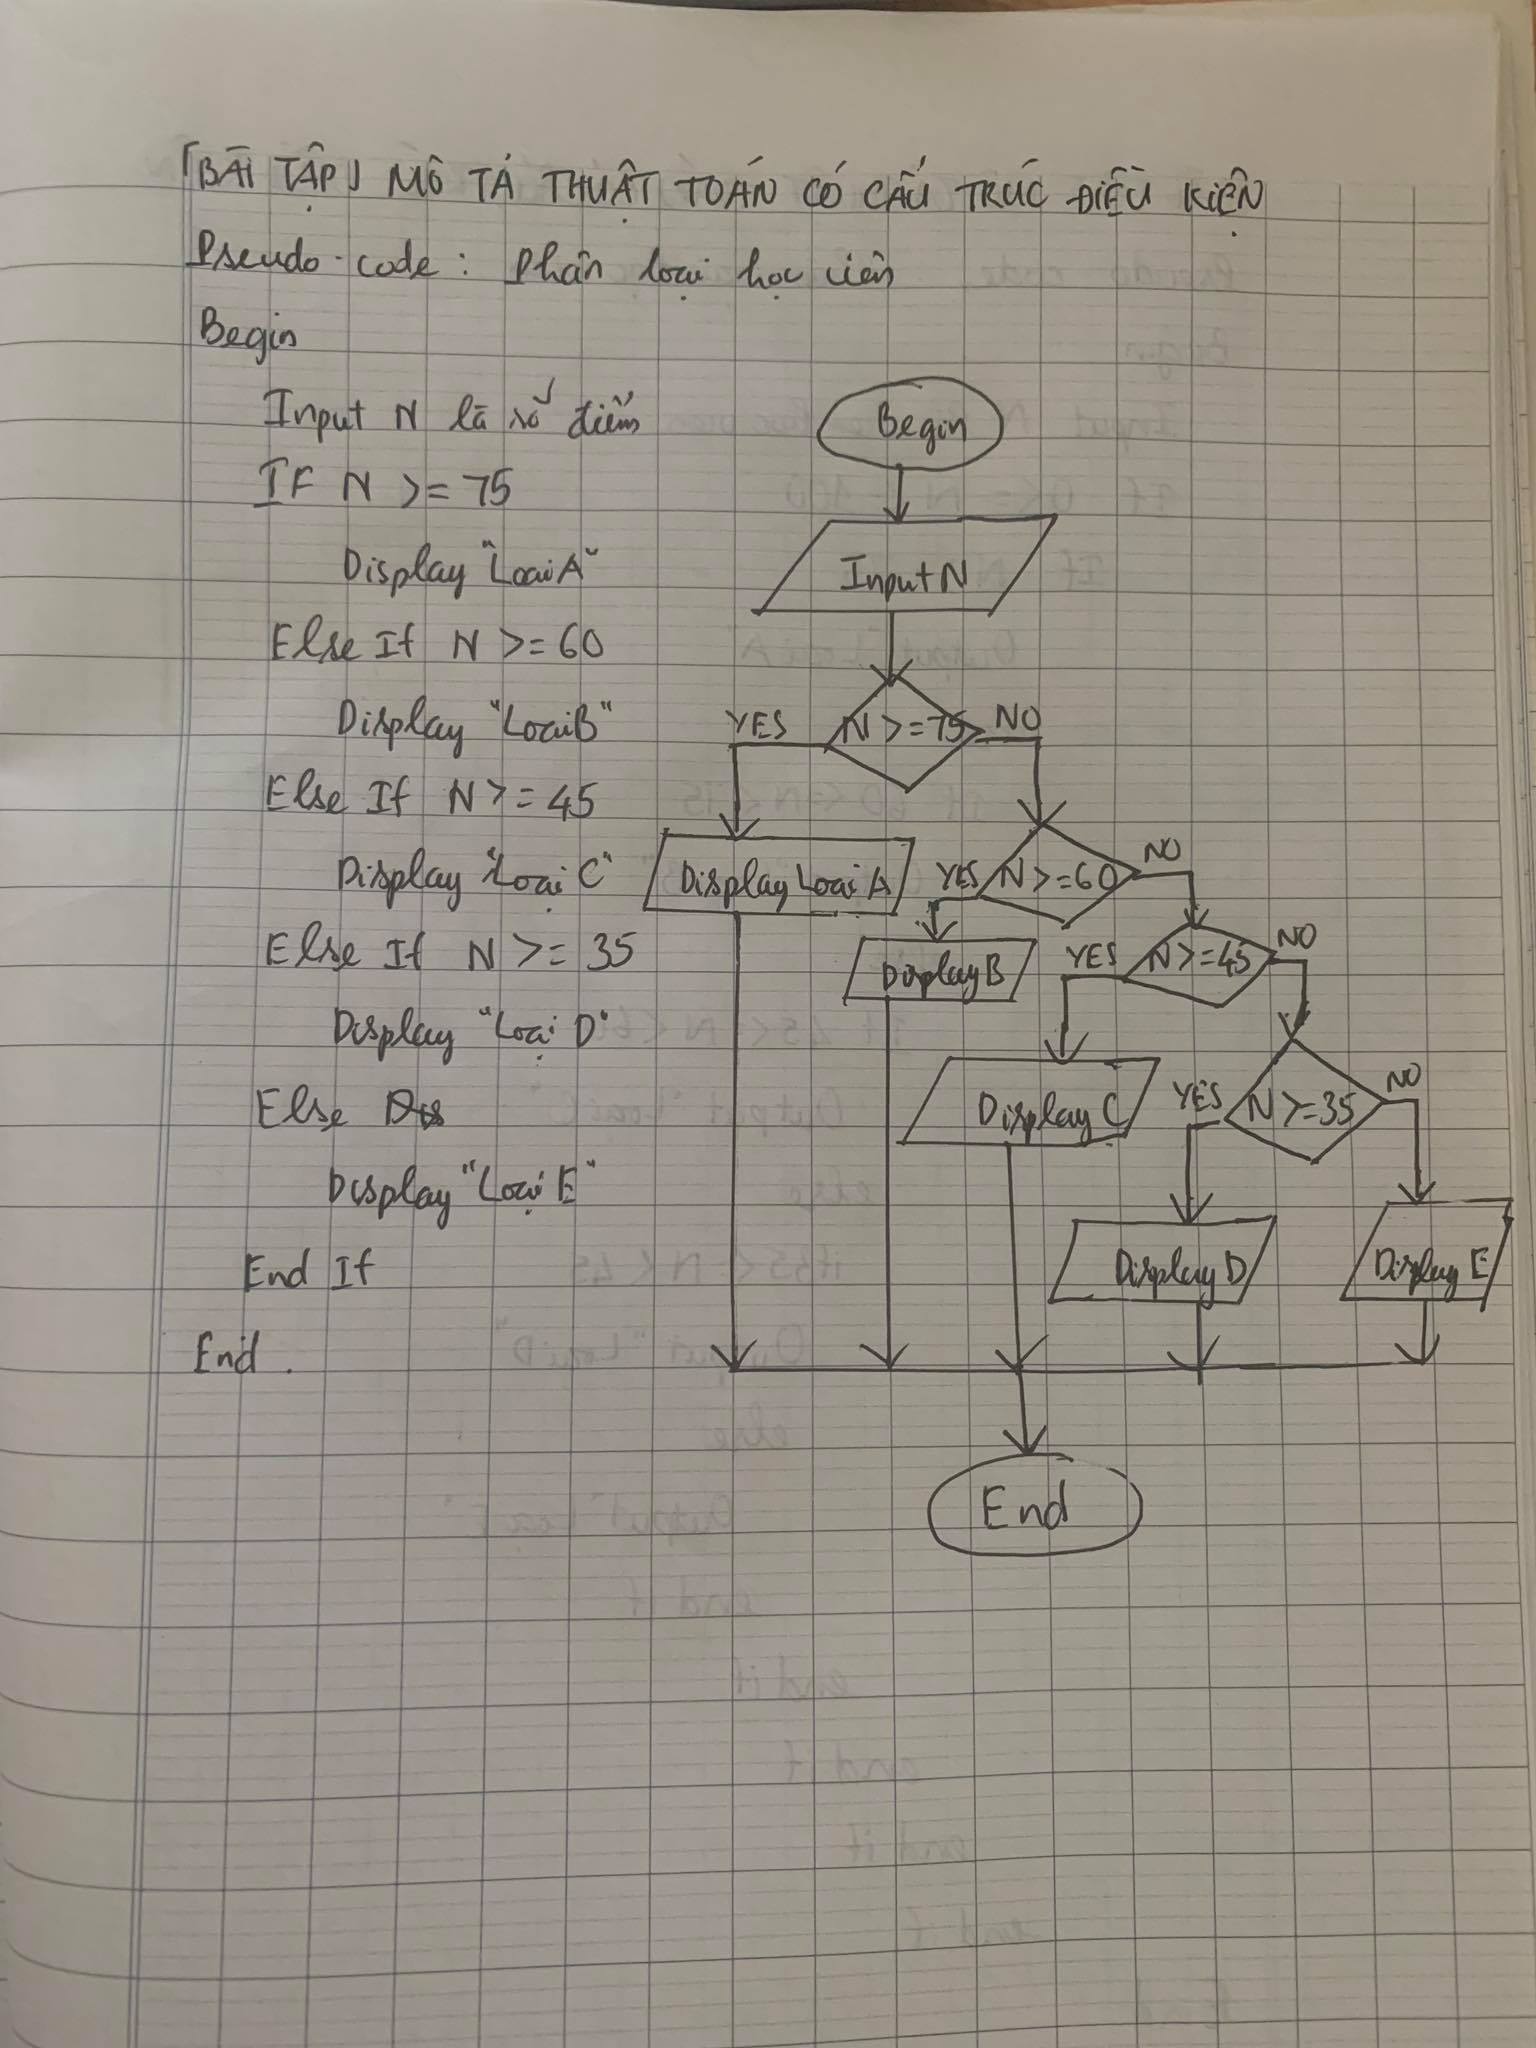 [BÀI TẬP] MÔ TẢ THUẬT TOÁN CÓ CẤU TRÚC ĐIỀU KIỆN
Pseudo-code: Phân loại học viên
Begin
Input N là số điểm
IF N >= 75
Display "Loại A"
Else If N >= 60
Display "Loại B"
Else If N >= 45
Display "Loại C"
Else If N >= 35
Display "Loại D"
Else
Display "Loại E"
End If
End.
Begin
Input N
N >= 75
YES
NO
Display Loại A
N >= 60
YES
NO
Display B
N >= 45
YES
NO
Display C
N >= 35
YES
NO
Display D
Display E
End